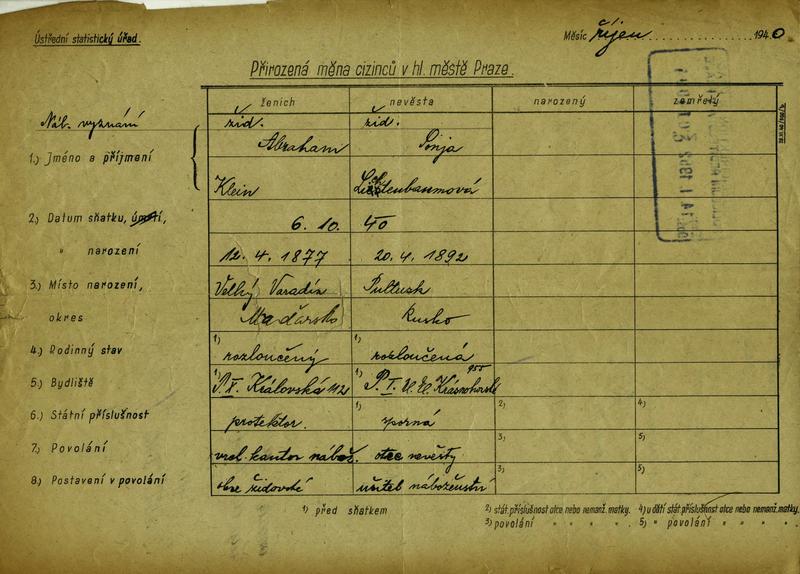 Ústřední statistický úřad.
Měsíc říjen 1940
Přirozená měna cizinců v hl. městě Praze.
ženich nevěsta narozený zemřelý
Náb. vyznání žid. žid.
1.) Jméno a příjmení Abraham Sonja
Klein Lichtenbaumová
2.) Datum sňatku, úmrtí, 6. 10. 40
" narození 12. 4. 1877 20. 4. 1892
3.) Místo narození, Velký Varadín Pultusk
okres Maďarsko Rusko
4.) Rodinný stav 1) rozloučený 1) rozloučená
5.) Bydliště 1) P. X. Královská 112 1) P. I. El. Krásnohorské 955
6.) Státní příslušnost protektor. 1) sporná 2) 4)
7.) Povolání vrch. kantor nábož. otec nevěsty 3) 5)
8.) Postavení v povolání obce židovské učitel náboženství 3) 5)
1) před sňatkem
2) stát. příslušnost otce nebo nemanž. matky. 4) u dětí stát. příslušnost otce nebo nemanž. matky.
3) povolání " " " " 5) " povolání " " " "